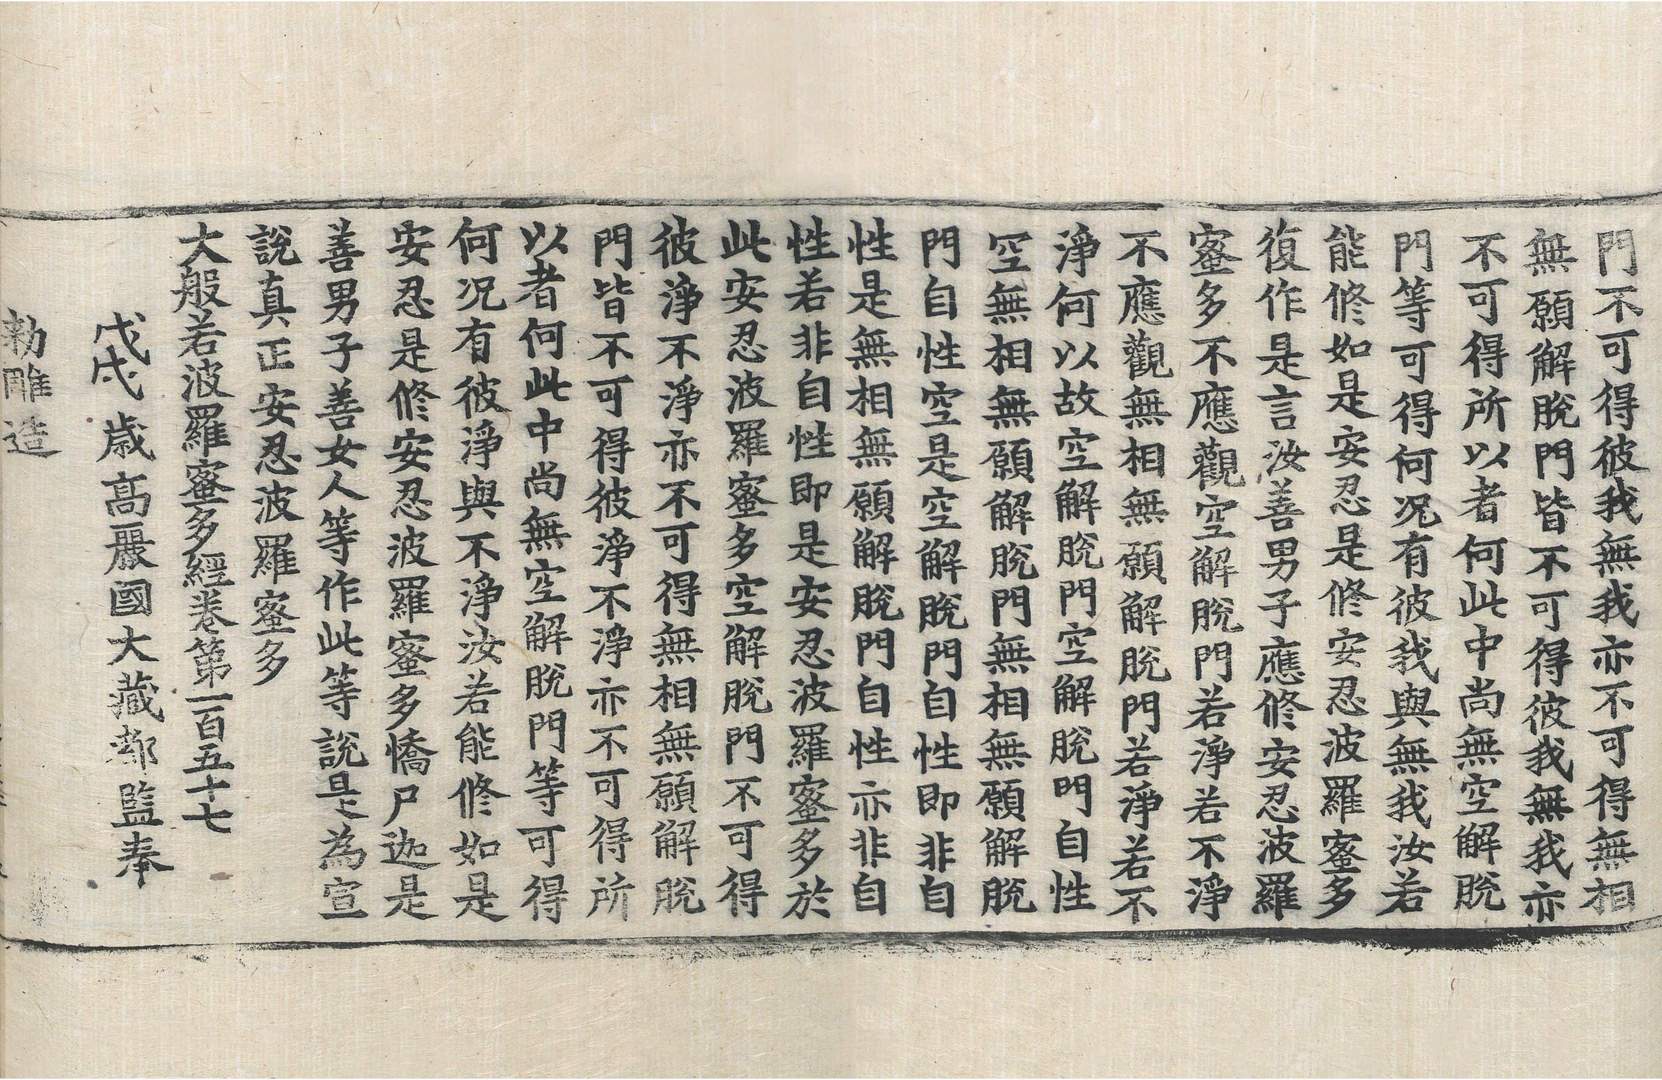 門不可得彼我無我亦不可得無相
無願解脫門皆不可得彼我無我亦
不可得所以者何此中尚無空解脫
門等可得何況有彼我與無我汝若
能修如是安忍是修安忍波羅蜜多
復作是言汝善男子應修安忍波羅
蜜多不應觀空解脫門若淨若不淨
不應觀無相無願解脫門若淨若不
淨何以故空解脫門空解脫門自性
空無相無願解脫門無相無願解脫
門自性空是空解脫門自性即非自
性是無相無願解脫門自性亦非自
性若非自性即是安忍波羅蜜多於
此安忍波羅蜜多空解脫門不可得
彼淨不淨亦不可得無相無願解脫
門皆不可得彼淨不淨亦不可得所
以者何此中尚無空解脫門等可得
何況有彼淨與不淨汝若能修如是
安忍是修安忍波羅蜜多憍尸迦是
善男子善女人等作此等說是為宣
說真正安忍波羅蜜多
大般若波羅蜜多經卷第一百五十七
戊戌歲高麗國大藏都監奉
勑雕造